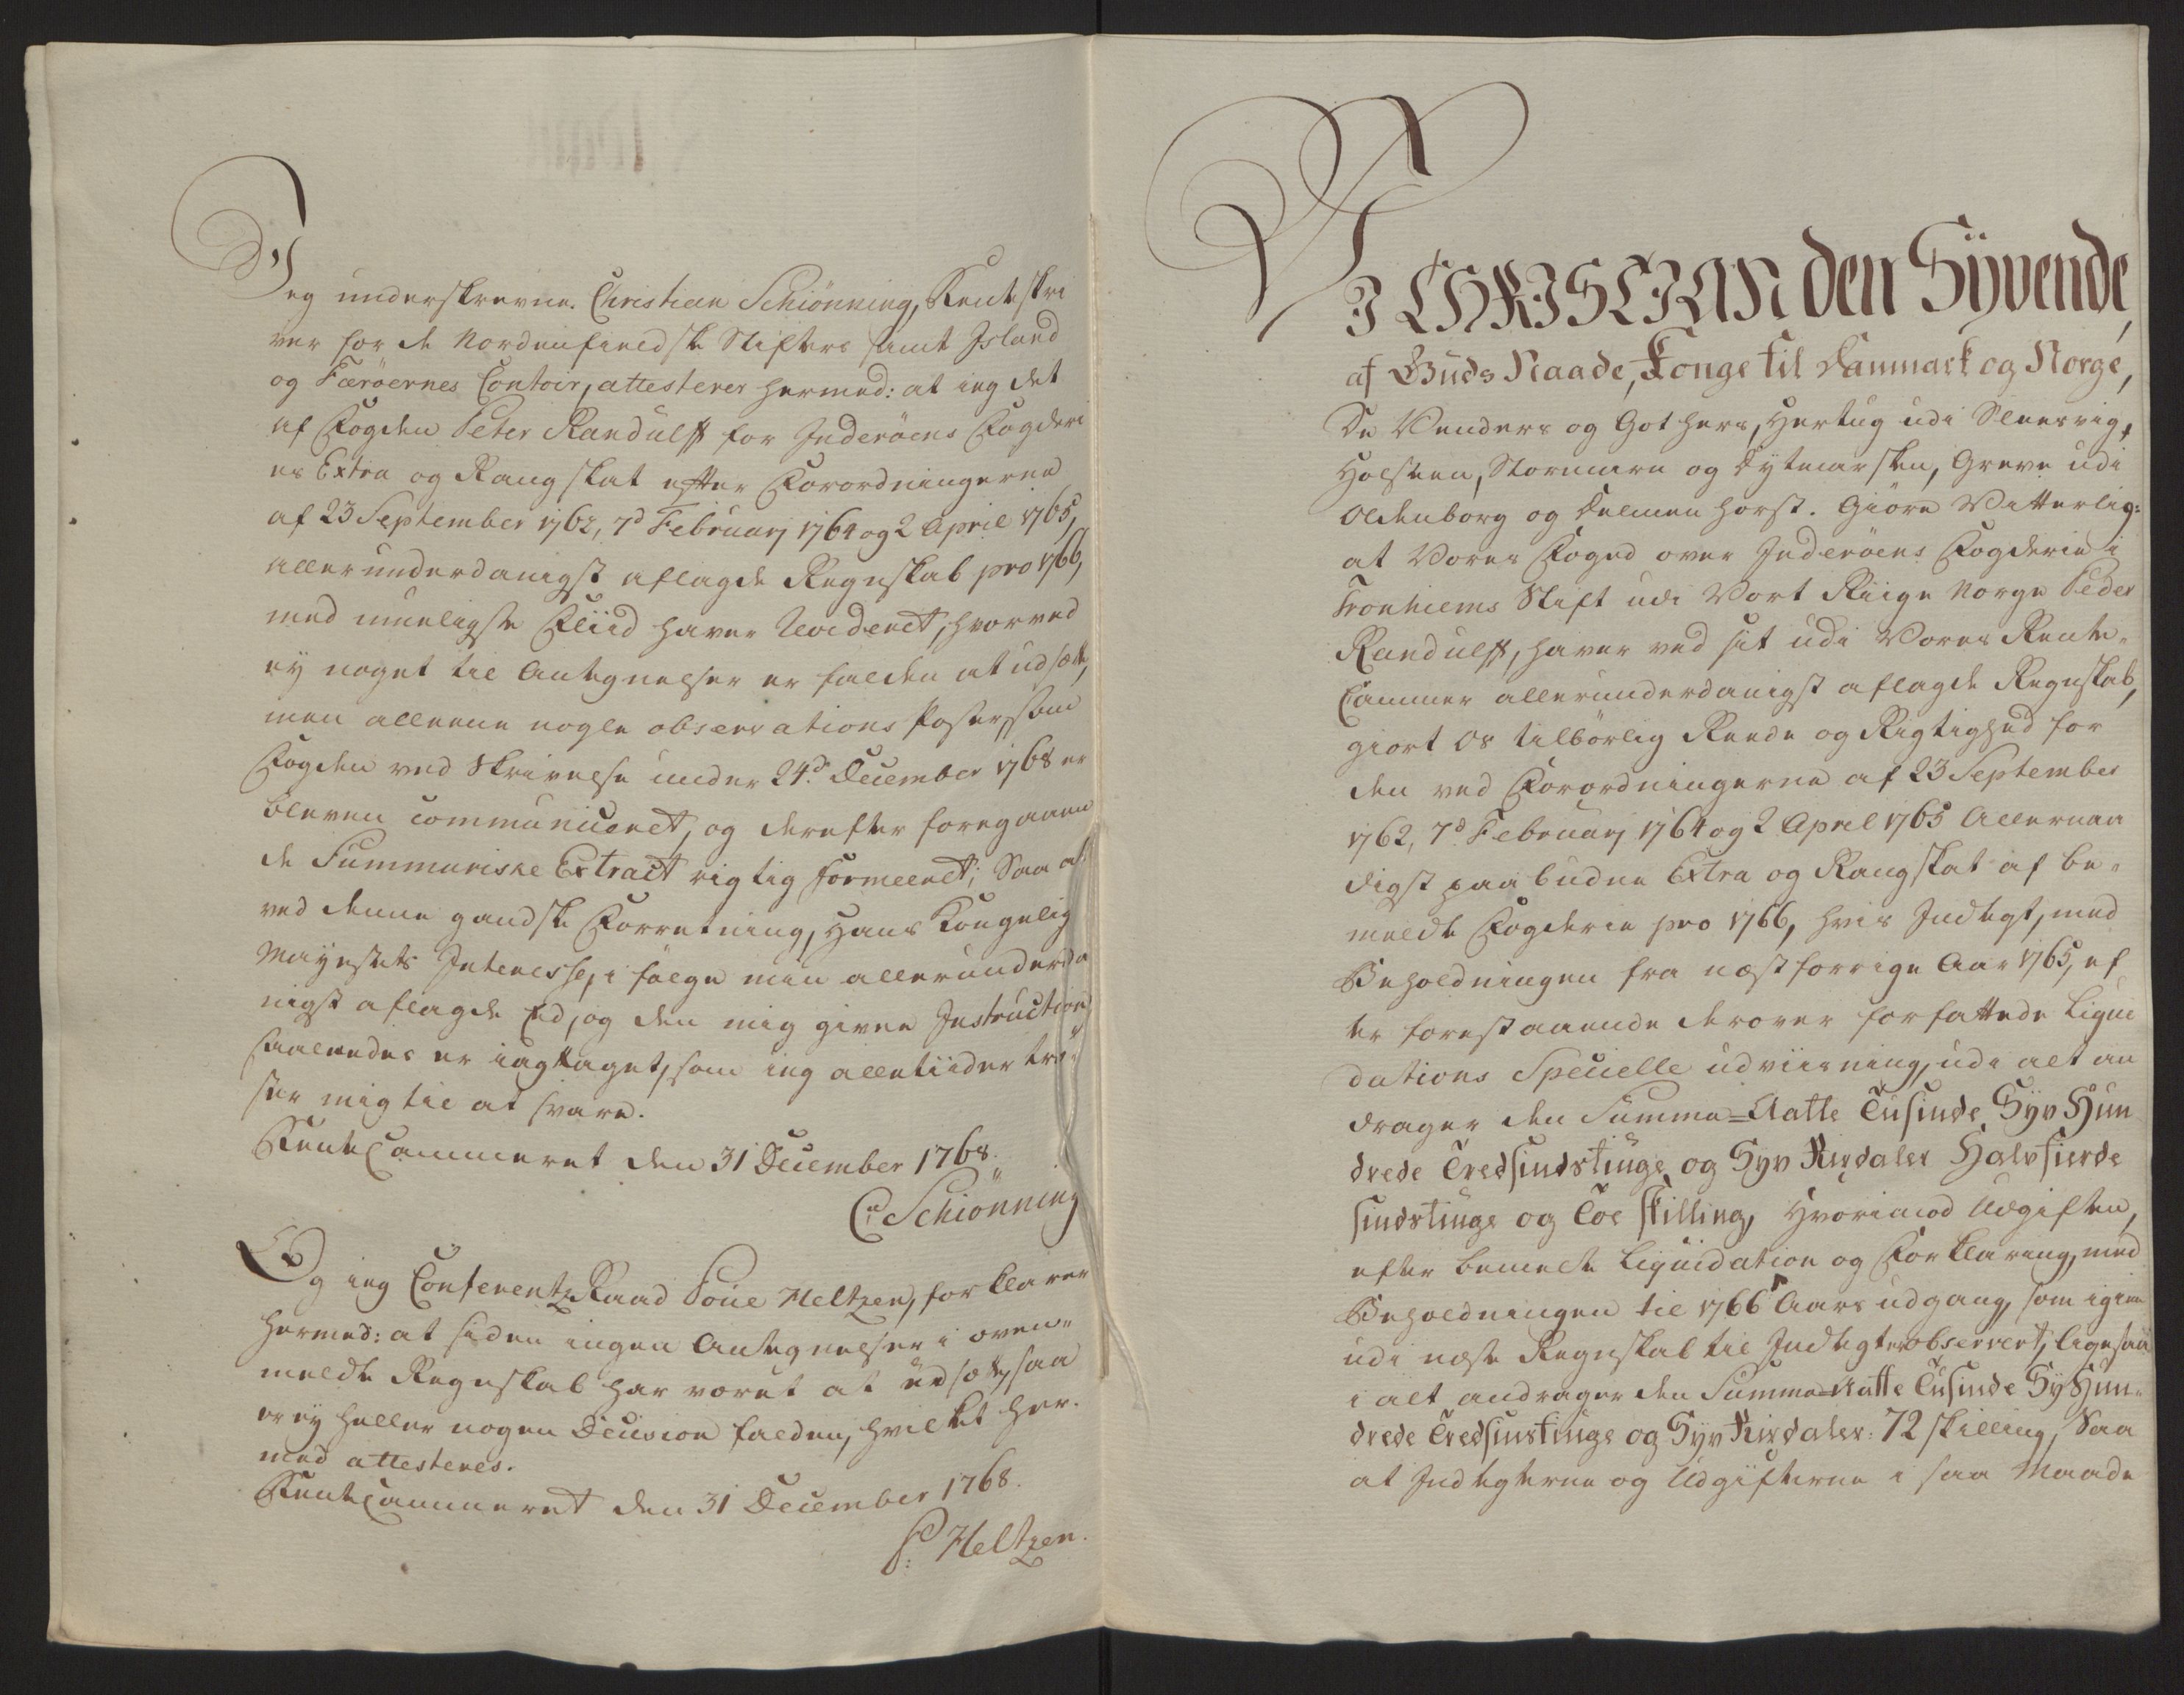 Jeg underskrevne Christian Schiönning, Rente skri
ver for de Nordenfieldske Stifters samt Island
og Færöernes Contoir, attesterer hermed: at ieg det
af Fogden Peter Randulff for Inderöens Fogderi
es Extra og Rang skat efter Forordningerne
af 23 September 1762, 7d Februarj 1764 og 2 April 1765,
allerunderdanigst aflagde Regnskab pro 1766,
med mueligste Fliid haver Revideret, hvorved
ey noget til Antegnelser er falden at udsætte,
men alleene nogle observations Poster, som
Fogden ved Skrivelse under 24d December 1768 er
bleven communiceret, og derefter foregaaen
de Summariske Extract rigtig formeeret; Saa at
ved denne gandske Forretning, Hans Kongelig
Mayestets Interesse, i fölge min allerunderda
nigst aflagde Eed, og den mig given Instruction
saaledes er iagttaget, som ieg alletiider trö-
ster mig til at svare.
RenteCammeret den 31 December 1768.
Cn Schiönning
Og ieg ConferentzRaad Poue Heltzen, forklarer
hermed: at siden ingen Antegnelser i oven-
meldte Regnskab har været at udsætte, saa
er ey heller nogen Decision falden, hvilket her-
med attesteres.
RenteCammeret den 31 December 1768.
P: Heltzen.
VJ CHRISTIAN den Syvende,
af Guds Naade, Konge til Danmark og Norge,
De Venders og Gothers, Hertug udi Slesvig,
Holsteen, Stormarn og Dytmarsken, Greve udi
Oldenborg og Delmenhorst. Giöre Vitterlig:
at Vores Foged over Inderöens Fogderie i
Tronhiems Stift udi Vort Riige Norge Peder
Randulff, haver ved sit udi Vores Rente-
Cammer allerunderdanigst aflagde Regnskab,
giort Os tilbörlig Reede og Rigtighed for
den ved Forordningerne af 23 September
1762, 7d Februarj 1764 og 2 April 1765 Allernaa
digst paabudne Extra og Rangskat af be-
meldte Fogderie pro 1766, hvis Indtegt, med
Beholdningen fra næstforrige Aar 1765, ef
ter forestaaende derover forfattede Liqui
dations Specielle udviisning, udi alt an
drager den Summa = Aatte Tusinde Syv Hun
drede Tredsindstiuge og Syv Rixdaler Halvfierde
sindstiuge og Toe skilling, Hvorimod Udgiften,
efter bemelte Liquidation og Forklaring, med
Beholdningen til 1766 Aars udgang, som igien
udi næste Regnskab til Indtegter observert, ligesaa
i alt andrager den Summa = Aatte Tusinde Sy Hun-
drede Tredsinstiuge og Syv Rixdaler: 72 skilling, Saa
at Indtegterne og Udgifterne i saa Maade